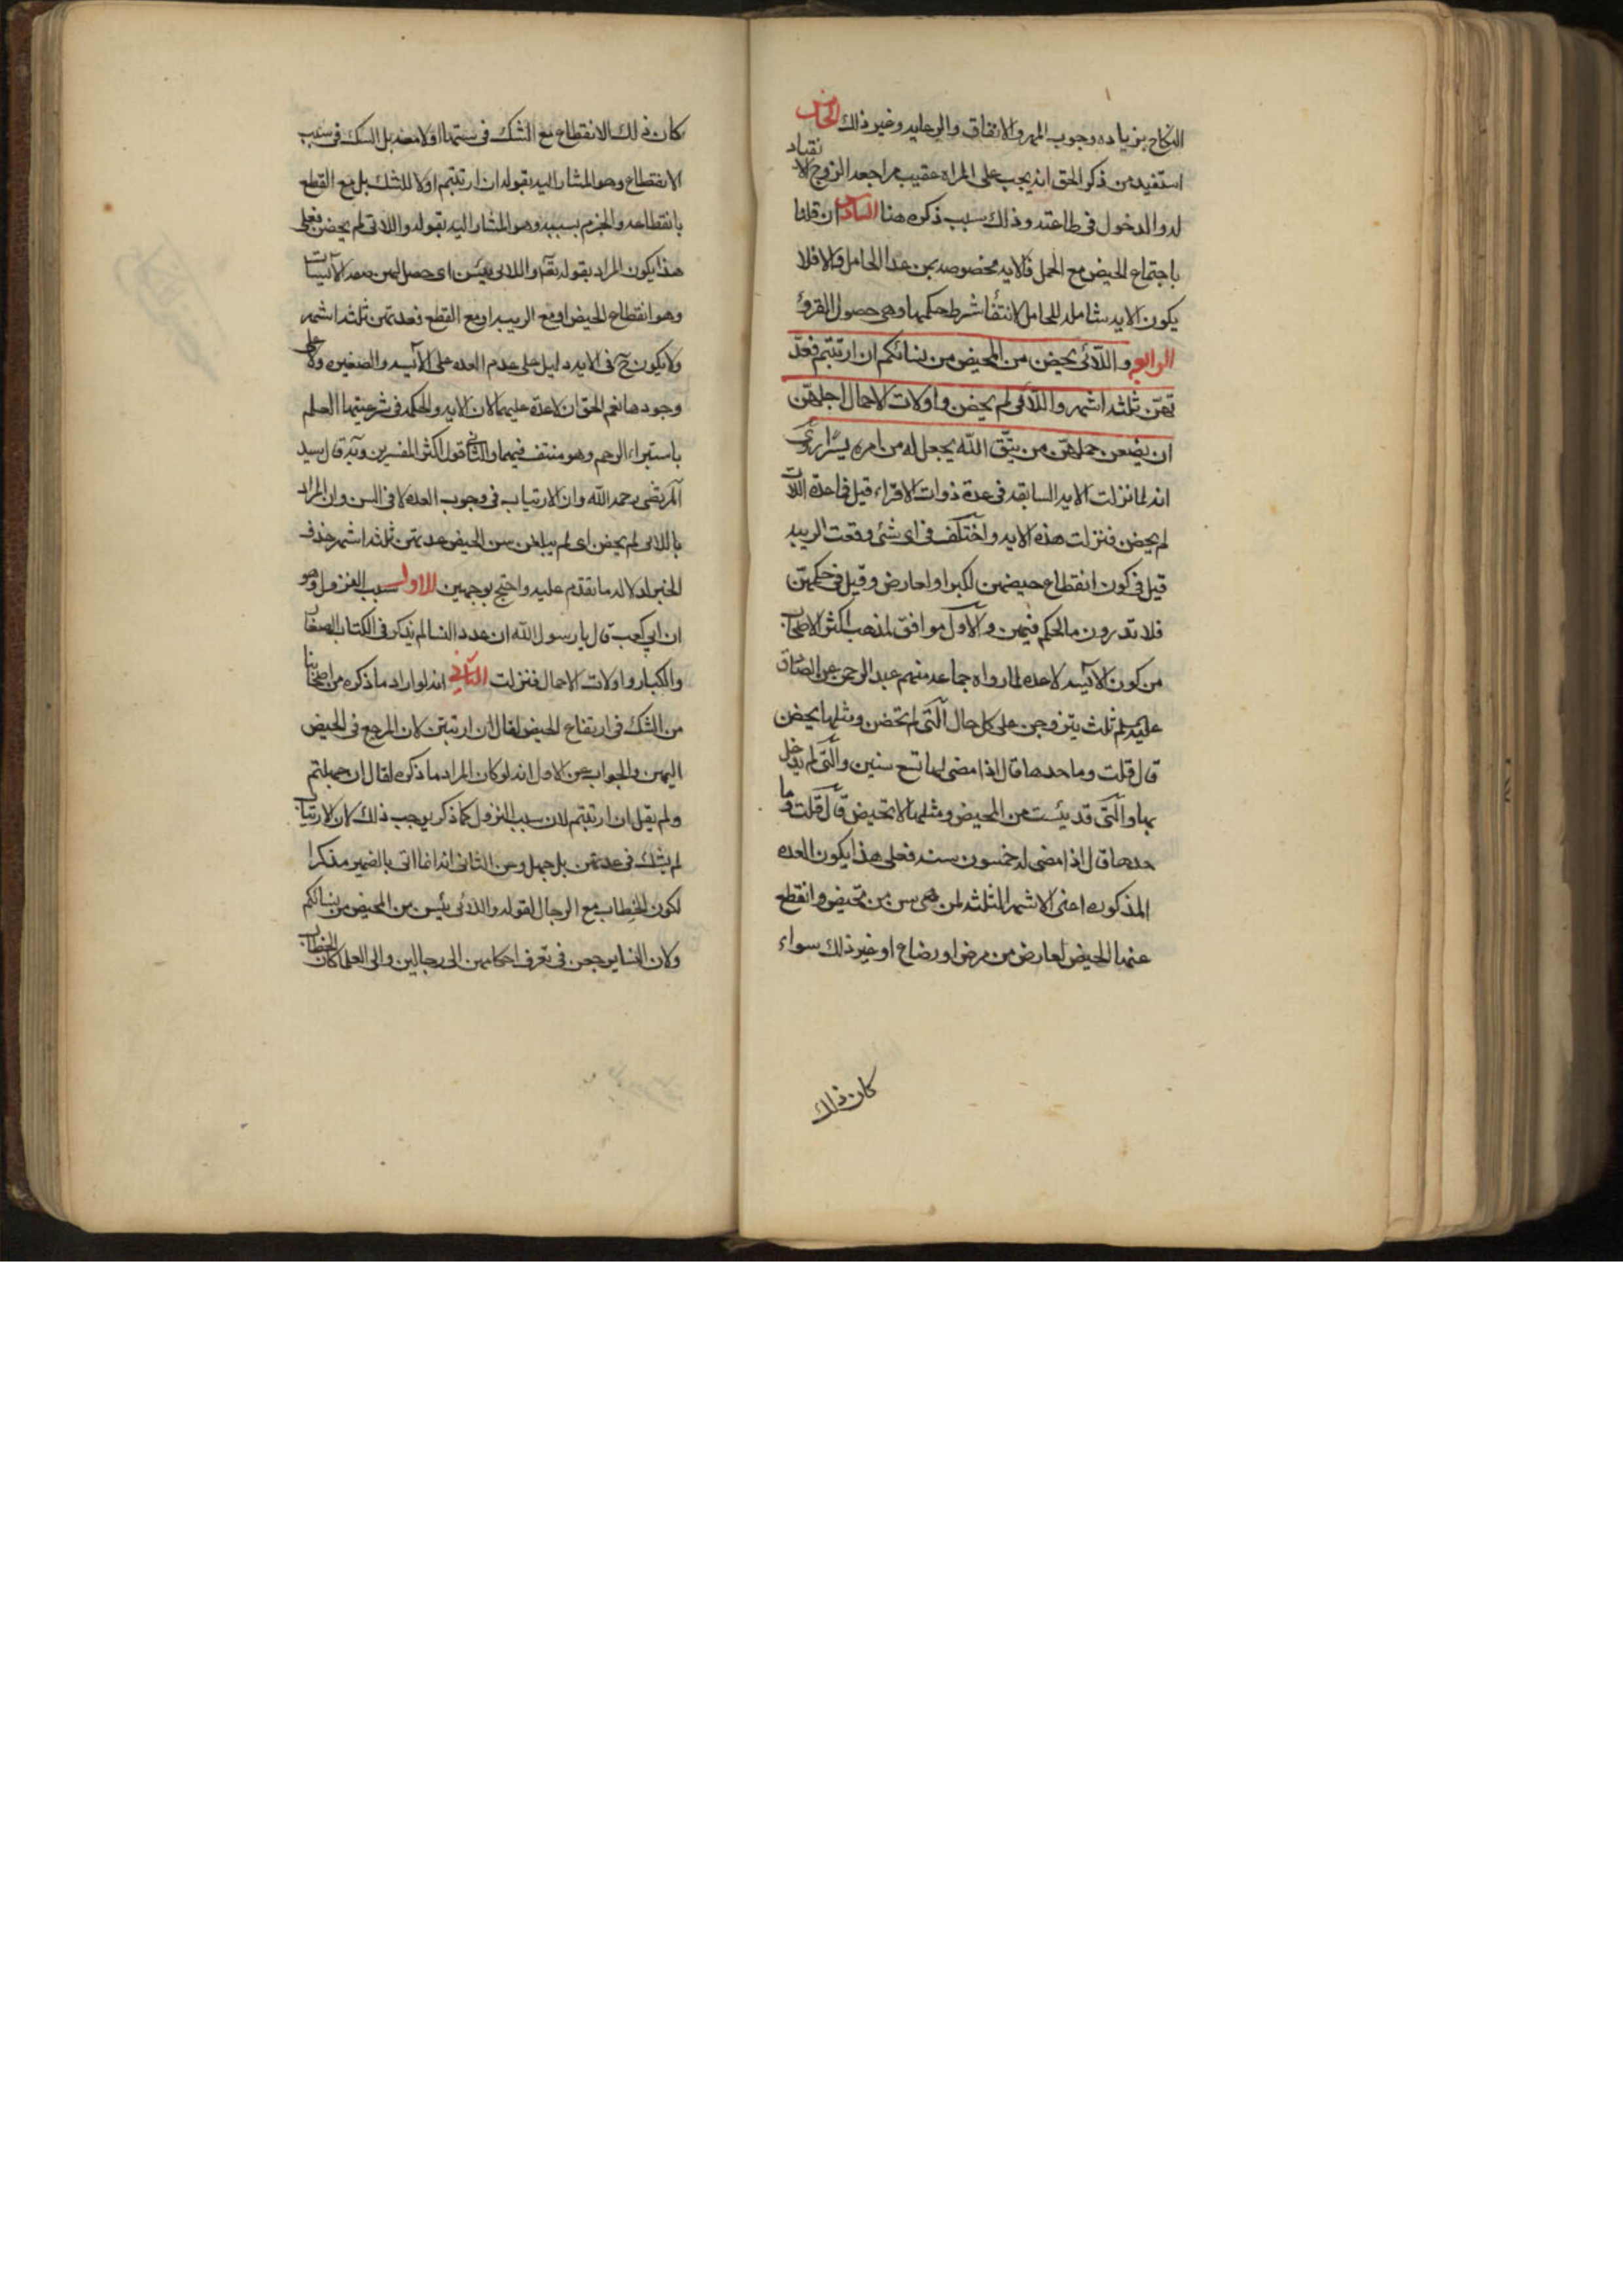 النكاح بزياده وجوب المهر والانفاق والرعايه وغير ذلك الخامس
استفيد من ذكر الحق انه يجب على المراه عقيب مراجعه الزوج الانقياد
له والدخول فى طاعته وذلك سبب ذكره هنا السادس ان قلنا
باجتماع الحيض مع الحمل فالايه مخصوصه بمن عدا الحامل والا فلا
يكون الايه شامله للحامل لانتفأ شرط حكمها وهى حصول القروء
الرابع واللّائى يحضن من المحيض من نسائكم ان ارتبتم فعدّ
تهنّ ثلثه اشهر واللّائى لم يحضن واولات الاحمال اجلهنّ
ان يضعن حملهنّ من يتّق الله يجعل له من امره يسرًا روى
انه لما نزلت الايه السابقه فى عدة ذوات الاقراء قيل فما عدة اللات
لم يحضن فنزلت هذه الايه واختلف فى اى شئ وقعت الريبه
قيل فى كون انقطاع حيضهن لكبر او لعارض وقيل فى حكمهنّ
فلا تدرون ما الحكم فيهن والاول موافق لمذهب اكثر الاصحاب
من كون الآيسه لا عده لما رواه جماعه منهم عبد الرحمن عن الصادق
عليه السلم ثلث يتزوجن على كل حال الّتى لم تحضن ومثلها يحضن
قال قلت وما حدها قال اذا مضى لها تسع سنين والّتى لم يدخل
بها والّتى قد يئست من المحيض ومثلها لا تحيض قال قلت وما
حدها قال اذا مضى له خمسون سنه فعلى هذا يكون العده
المذكوره اعنى الاشهر الثلثه لمن هى سن من تحيض وانقطع
عنها الحيض لعارض من مرض او رضاع او غير ذلك سواء
كان ذلك
كان ذلك الانقطاع مع الشك فى سنها اولا معه بل الشك فى سبب
الانقطاع وهو المشار اليه بقوله ان ارتبتم اولا للشك بل مع القطع
بانقطاعه والجزم بسببه وهو المشار اليه بقوله واللاتى لم يحضن فعلى
هذا يكون المراد بقوله تعٓ واللائى يئسن اى حصل لهن صفه الآئيسات
وهو انقطاع الحيض او مع الريبه او مع القطع فعدتهن ثلثه اشهر
ولا يكون حٓ فى الايه دليل على عدم العده على الآيسه والصغيره ولا على
وجودها نعم الحق ان لاعدة عليهما لان الايه والحكمه فى شرعيتها العلم
باستبراء الرحم وهو منتف فيهما والثانى قول اكثر المفسرين وبه قال سيد
المرتضى رحمه الله وان الارتياب فى وجوب العده لا فى السن وان المراد
باللائى لم يحضن اى لم يبلغن سن الحيض عدتهن ثلثه اشهر حذف
الخبر لدلاله ما تقدم عليه واحتج بوجهين الاول سبب النزول وهو
ان ابى كعب قال يا رسول الله ان عدد النسا لم يذكر فى الكتاب الصغار
والكبار واولات الاحمال فنزلت الثانى انه لو اراد ما ذكره من اصحابنا
من الشك فى ارتفاع الحيض لقال ان ارتبتن لان المرجع فى الحيض
اليهن والجواب عن الاول انه لو كان المراد ما ذكره لقال ان جهلتم
ولم يقل ان ارتبتم لان سبب النزول كما ذكر يوجب ذلك لان الارتياب
لم يشك فى عدتهن بل جهل وعن الثانى انه انما اتى بالضمير مذكرا
لكون الخطاب مع الرجال لقوله واللائى يئسن من المحيض من نسائكم
ولان النسا يرجعن فى تعرف احكامهن الى رجالهن والى العلما كان الخطاب